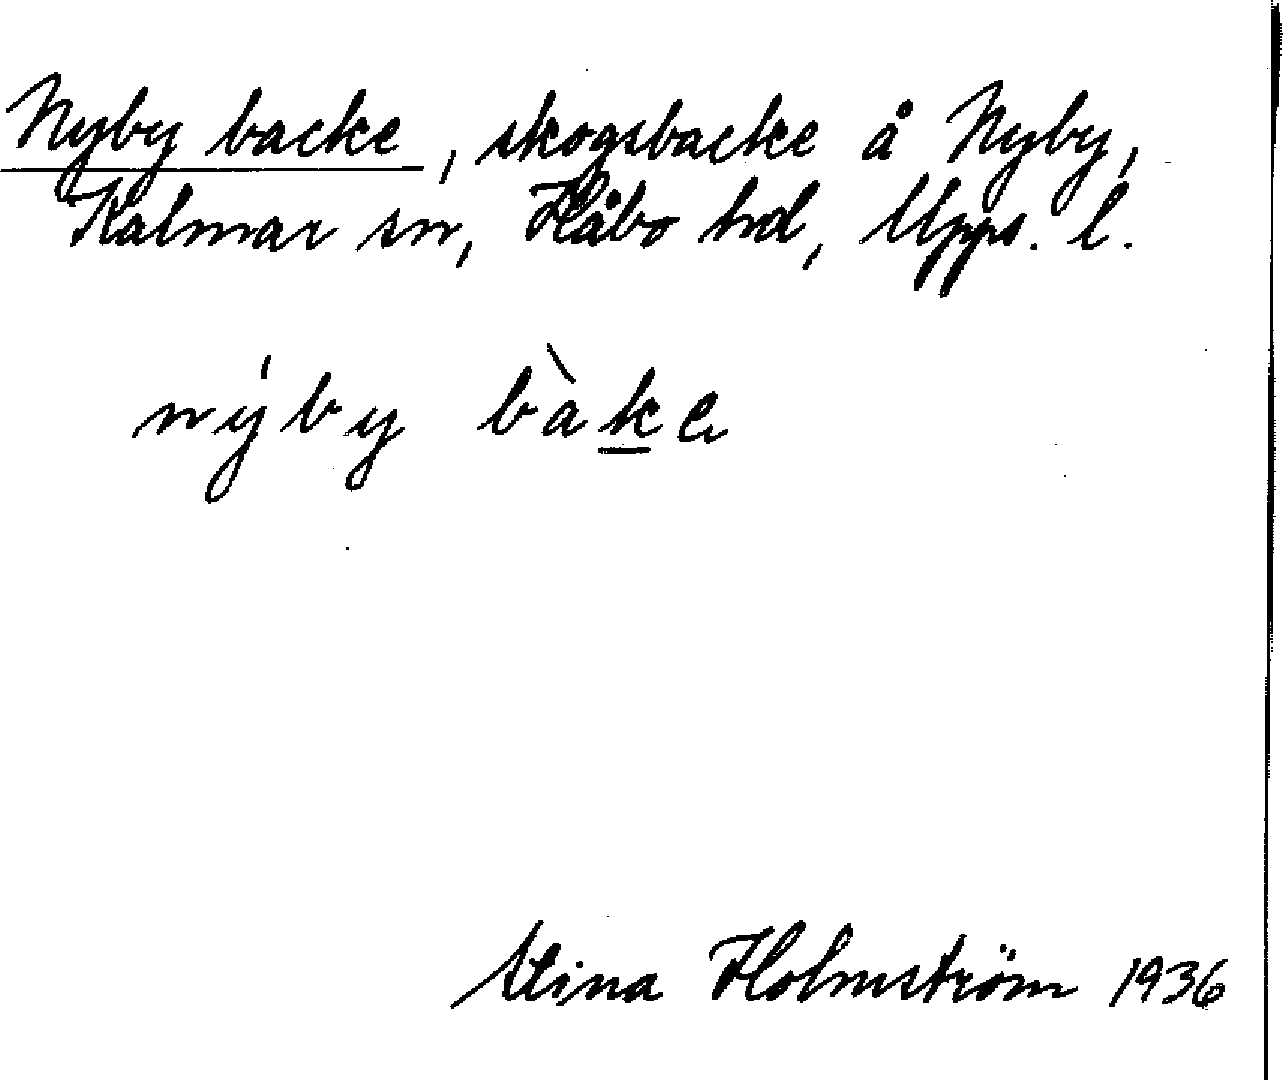 Nyby backe, skogsbacke å Nyby,
Kalmar sn, Håbo hd, Upps. l.
nýby bàke
Stina Holmström 1936